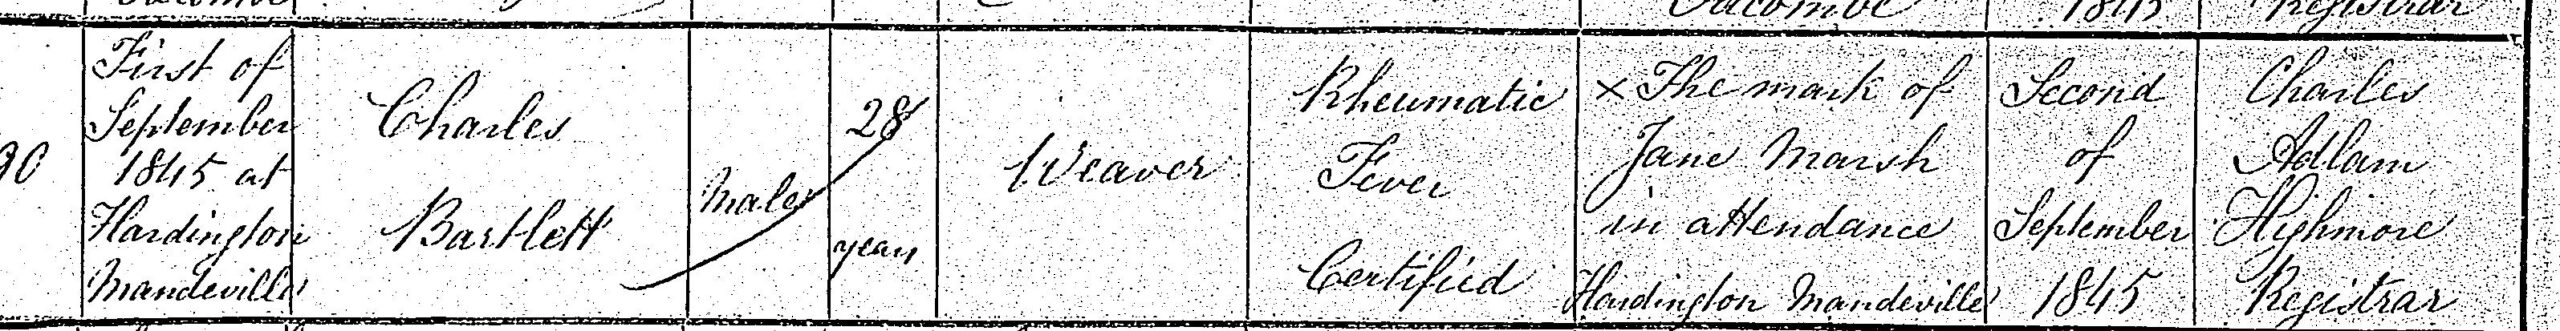 1845
Registrar
90
First of
September
1845 at
Hardington
Mandeville
Charles
Bartlett
Male
28
years
Weaver
Rheumatic
Fever
Certified
× The mark of
Jane Marsh
in attendance
Hardington Mandeville
Second
of
September
1845
Charles
Adlam
Highmore
Registrar